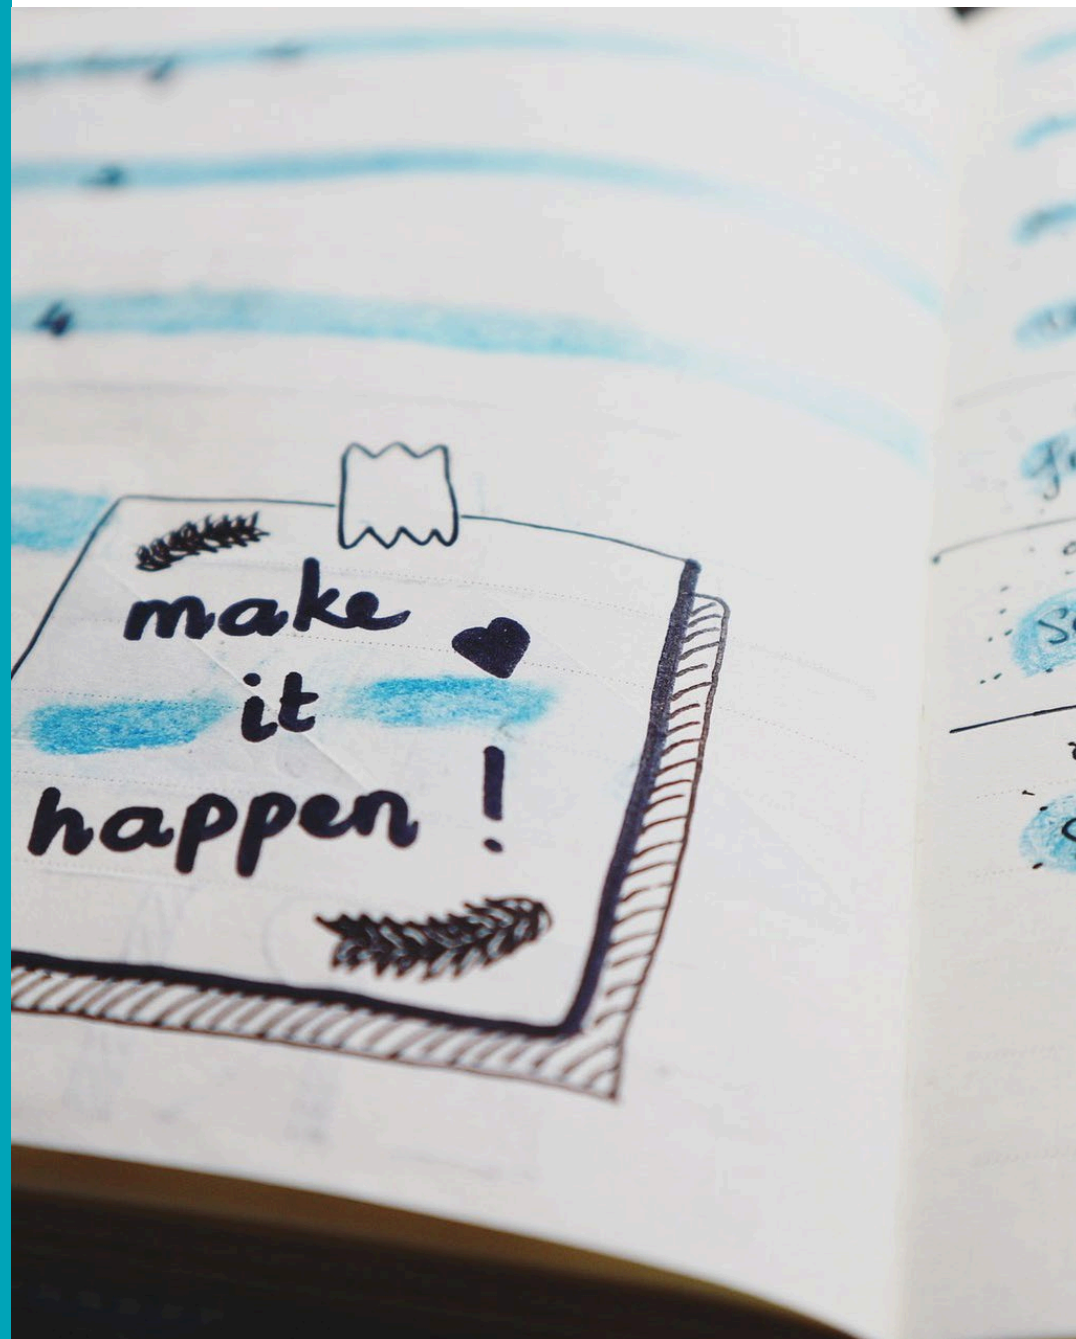 4
make
it
happen !